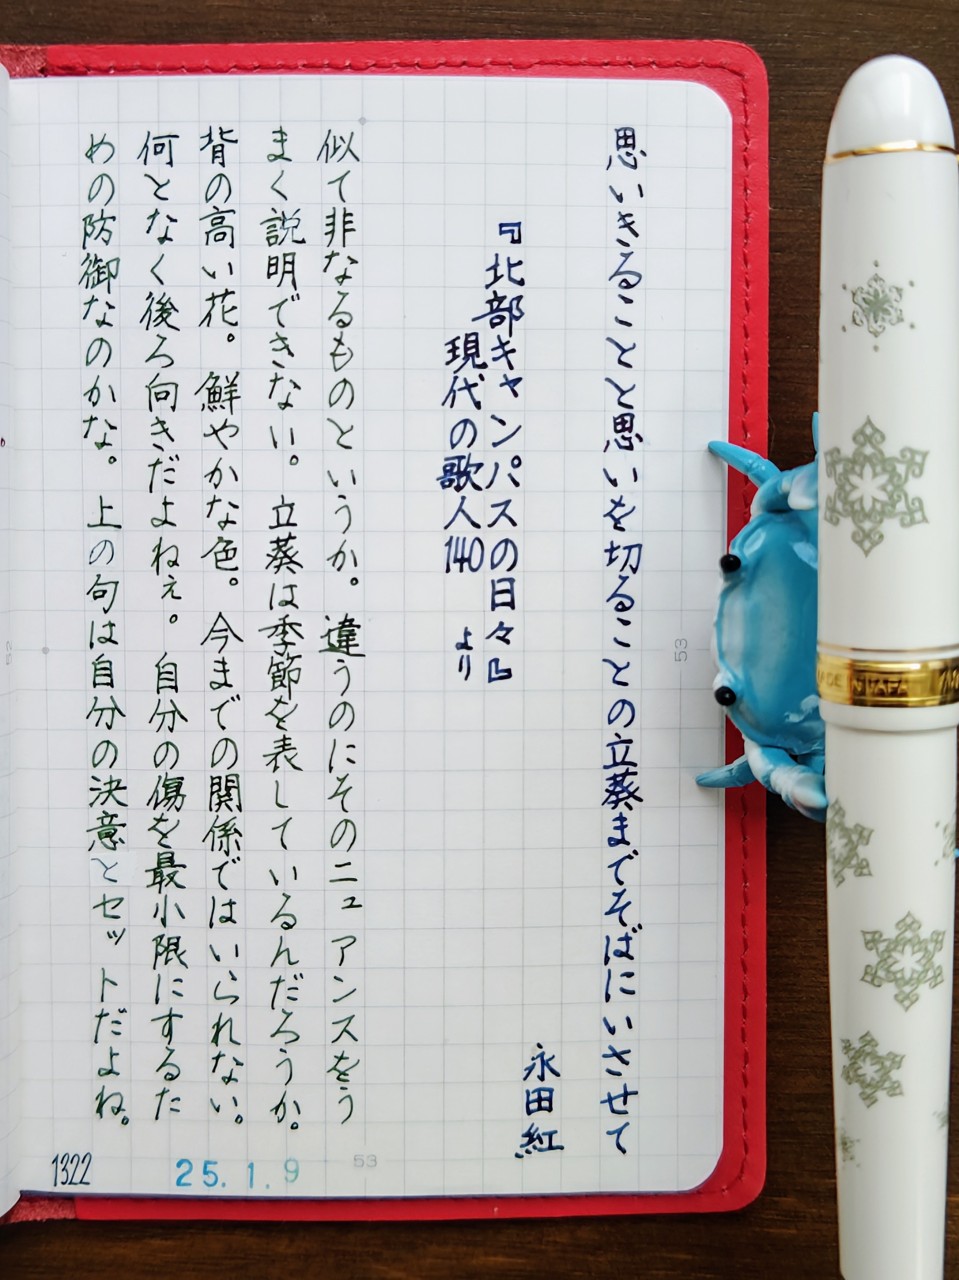 思いきることと思いを切ることの立葵までそばにいさせて
永田紅
『北部キャンパスの日々』
現代の歌人140 より
似て非なるものというか。違うのにそのニュアンスをう
まく説明できない。立葵は季節を表しているんだろうか。
背の高い花。鮮やかな色。今までの関係ではいられない。
何となく後ろ向きだよねぇ。自分の傷を最小限にするた
めの防御なのかな。上の句は自分の決意とセットだよね。
1322
25.1.9
53
53
52